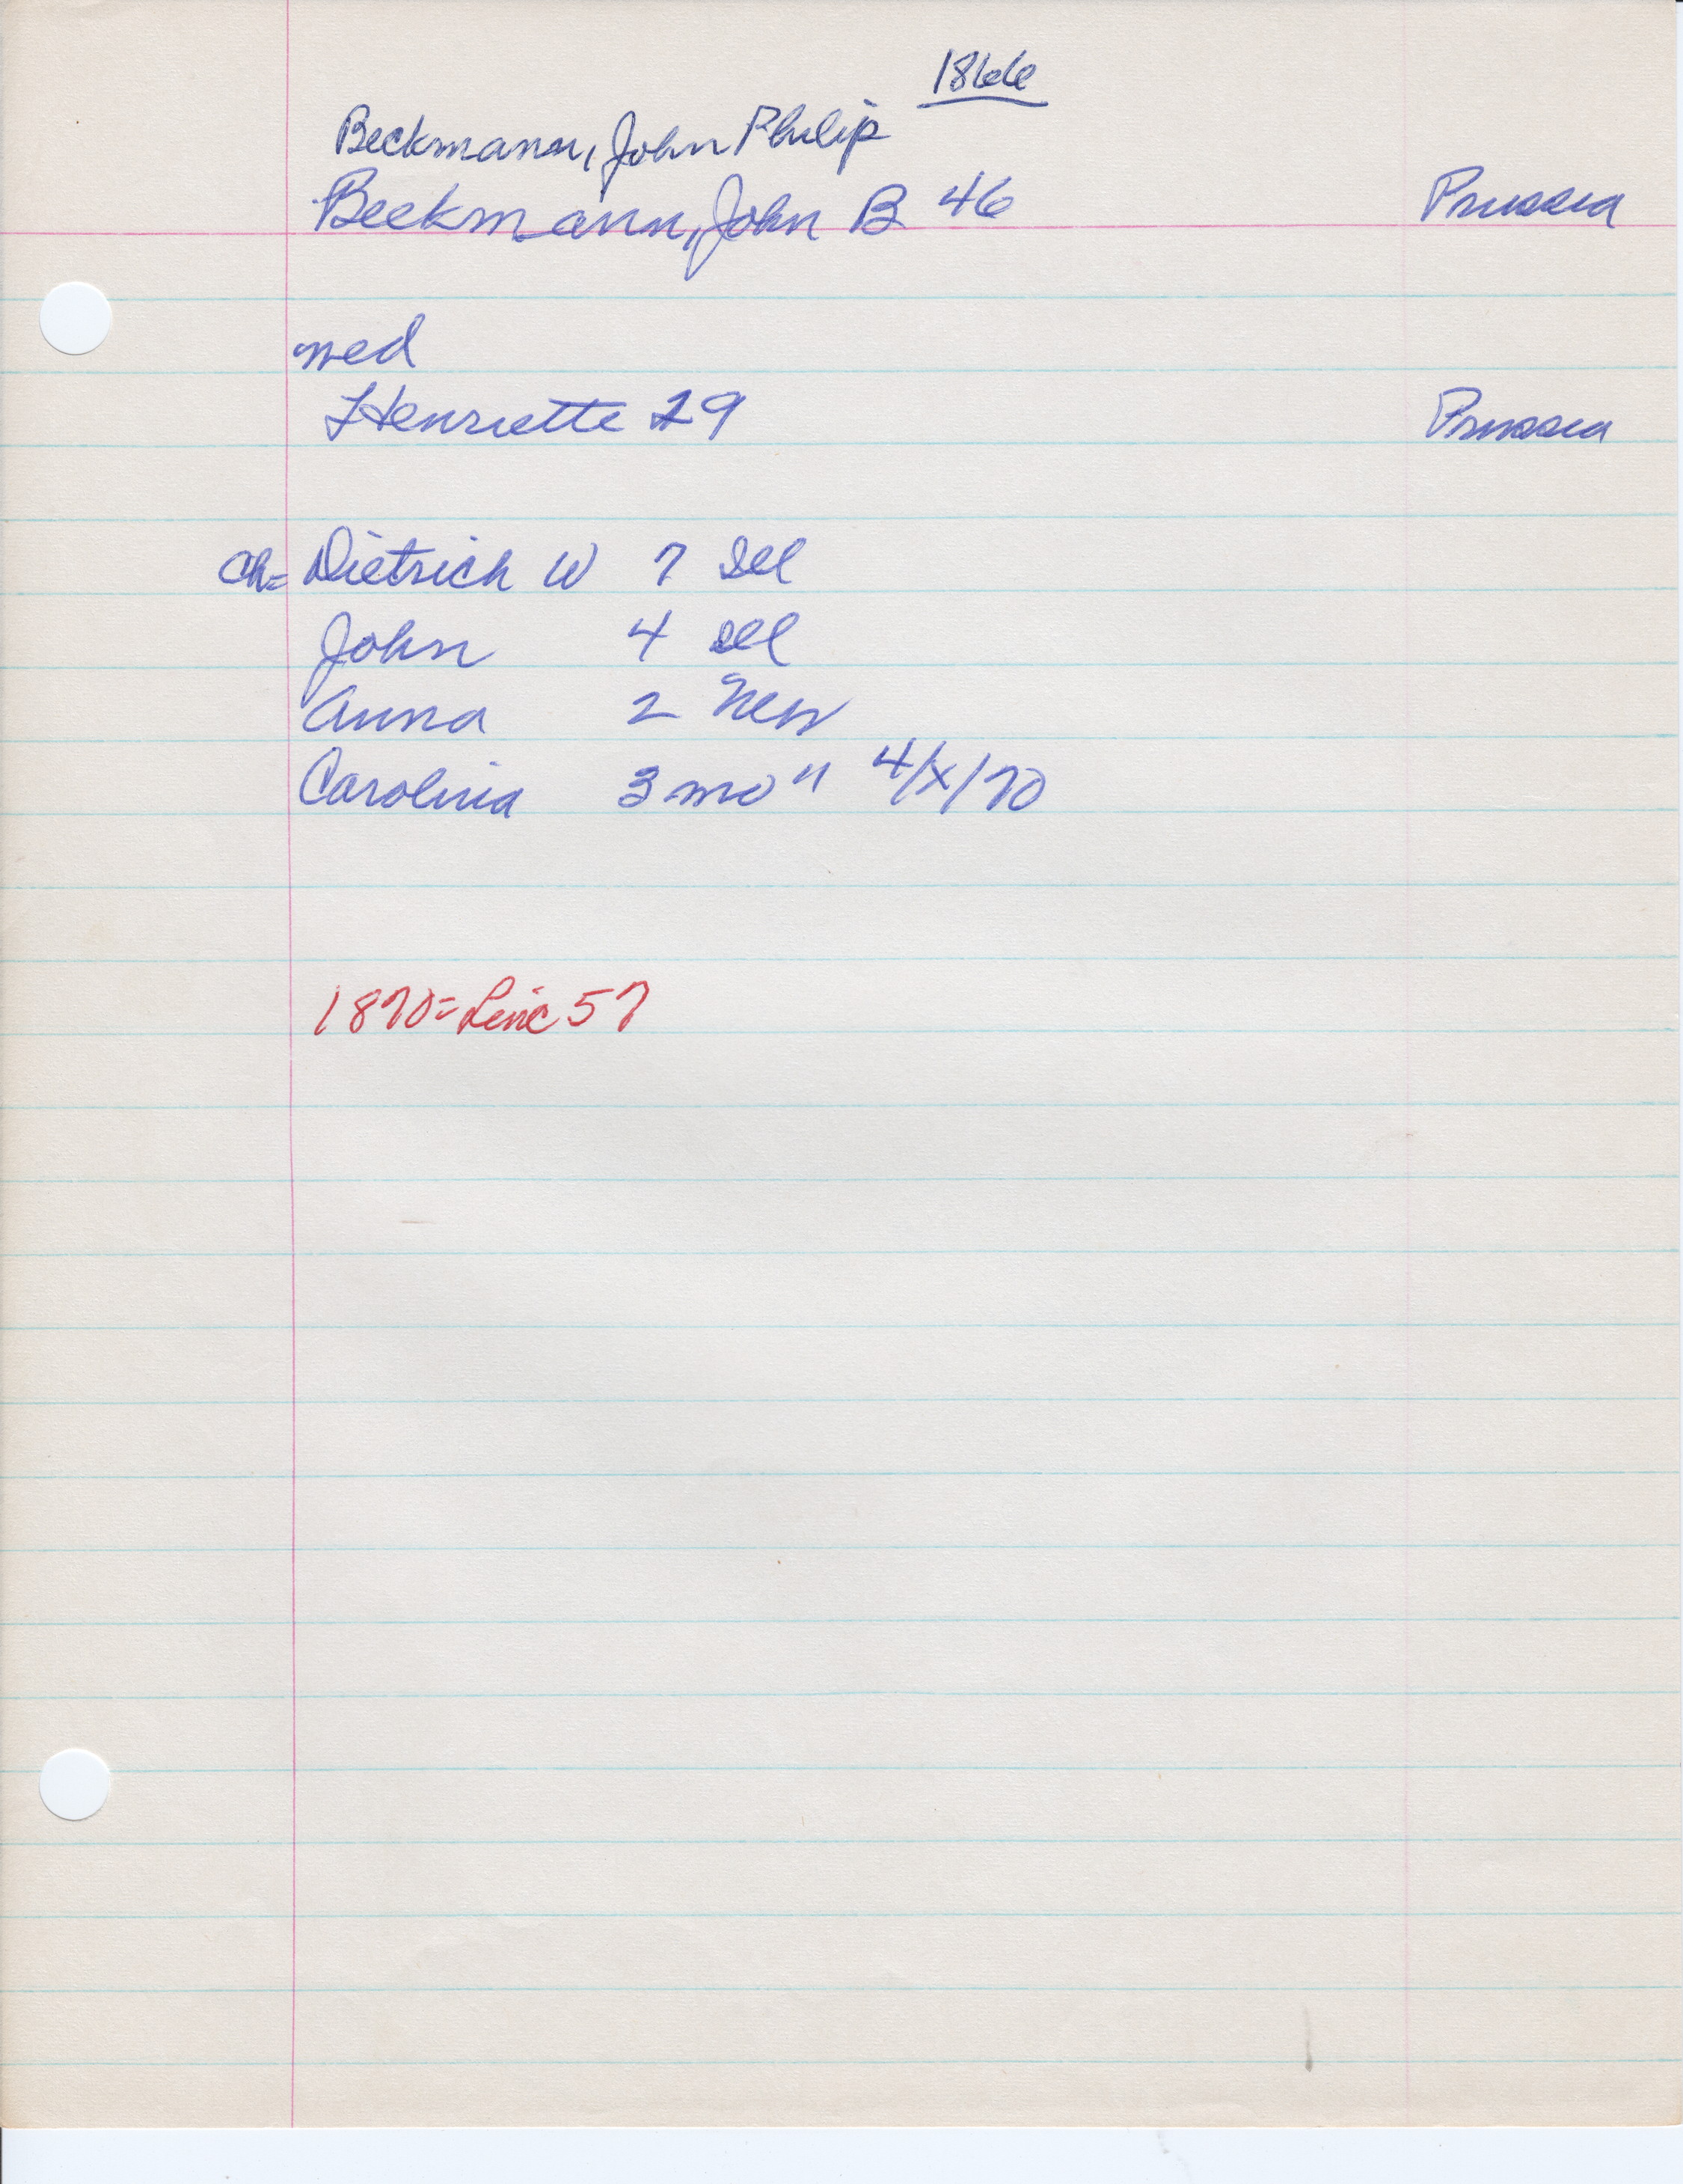 1866
Beckmann, John Philip
Beckmann, John B 46 Prussia
med
Henriette 29 Prussia
Ch= Dietrich W 7 Ill
John 4 Ill
Anna 2 New
Carolina 3 mo " 4/x/70
1870= Line 57